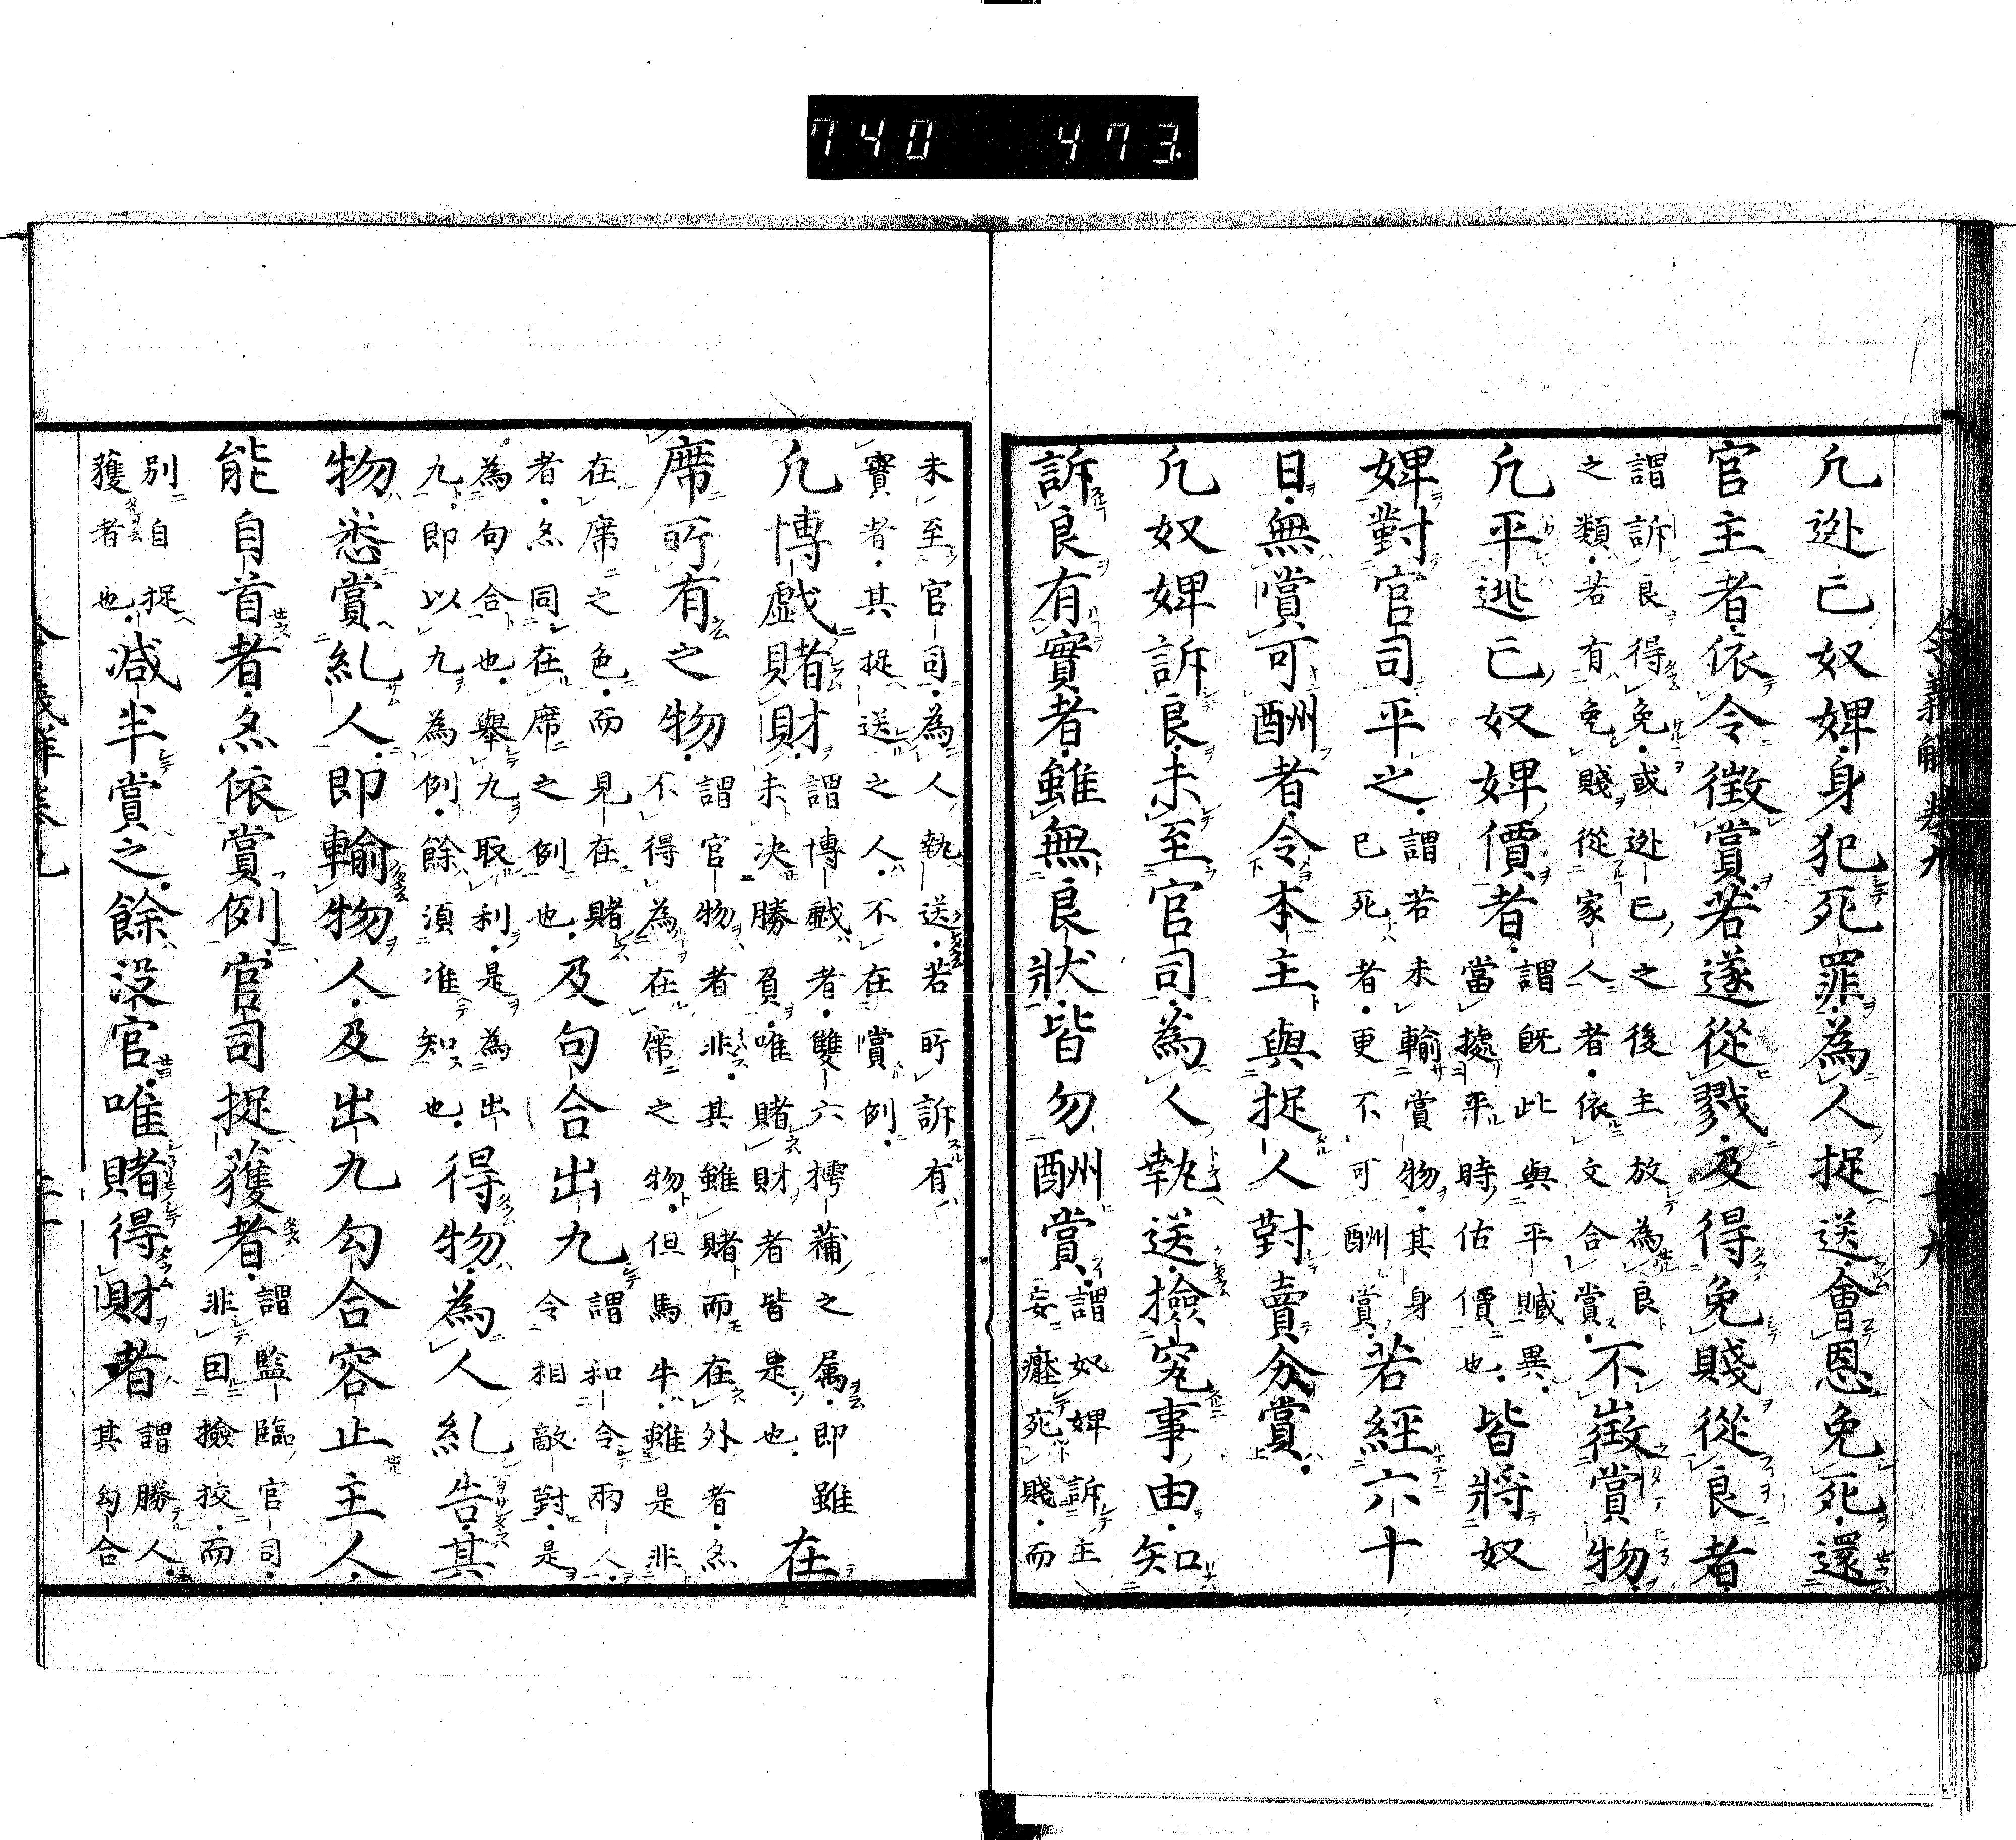 740 473
凢迯亡奴婢身犯死罪為人捉送會恩免死還
官主者依令徵賞若遂從戮及得免賤從良者
謂訴良得免或迯亡之後主放為良
之類若有免賤從家人者依文合賞不徵賞物
凢平逃亡奴婢價者謂既此與平贓異
當據平時估價也皆將奴
婢對官司平之謂若未輸賞物其身
已死者更不可酬賞若經六十
日無賞可酬者令本主與捉人對賣分賞
凢奴婢訴良未至官司為人執送撿究事由知
訴良有實者雖無良狀皆勿酬賞謂奴婢訴主
妄壓死賤而
未至官司為人執送若所訴有
實者其捉送之人不在賞例
凢博戯賭財謂博戯者雙六樗蒲之属即雖
未决勝負唯賭財者皆是也在
席所有之物謂官物者非其雖賭而在外者亦
不得為在席之物但馬牛雖是非
在席之色而見在賭
者亦同在席之例也及句合出九謂和合兩人
令相敵對是
為句合也舉九取利是為出
九即以九為例餘須准知也得物為人糺告其
物悉賞糺人即輸物人及出九勾合容止主人
能自首者亦依賞例官司捉獲者謂監臨官司
非因撿挍而
別自捉
獲者也減半賞之餘沒官唯賭得財者謂勝人
其勾合